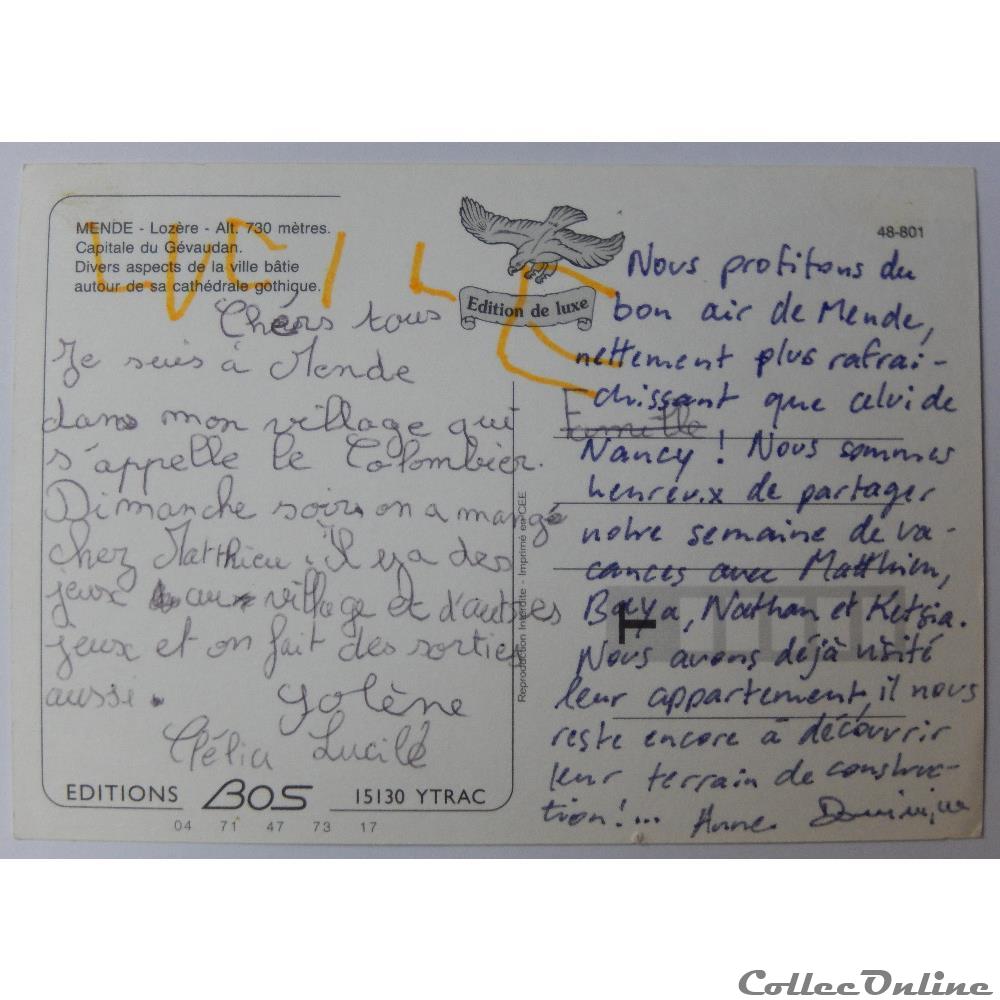 MENDE - Lozère - Alt. 730 mètres.
Capitale du Gévaudan.
Divers aspects de la ville bâtie
autour de sa cathédrale gothique.
LUCILE
Edition de luxe
48-801
Chers tous
Je suis à Mende
dans mon village qui
s'appelle le Colombier.
Dimanche soir on a mangé
chez Matthieu. Il y a des
jeux au village et d'autres
jeux et on fait des sorties
aussi.
Yolène
Célia Lucile
EDITIONS BOS 15130 YTRAC
04 71 47 73 17
Reproduction Interdite - Imprimé en CEE
Famille
Nous profitons du
bon air de Mende,
nettement plus rafraî-
chissant que celui de
Nancy ! Nous sommes
heureux de partager
notre semaine de va-
cances avec Matthieu,
Baya, Nathan et Ketzia.
Nous avons déjà visité
leur appartement, il nous
reste encore à découvrir
leur terrain de construc-
tion !... Anne Dominique
T
CollecOnline